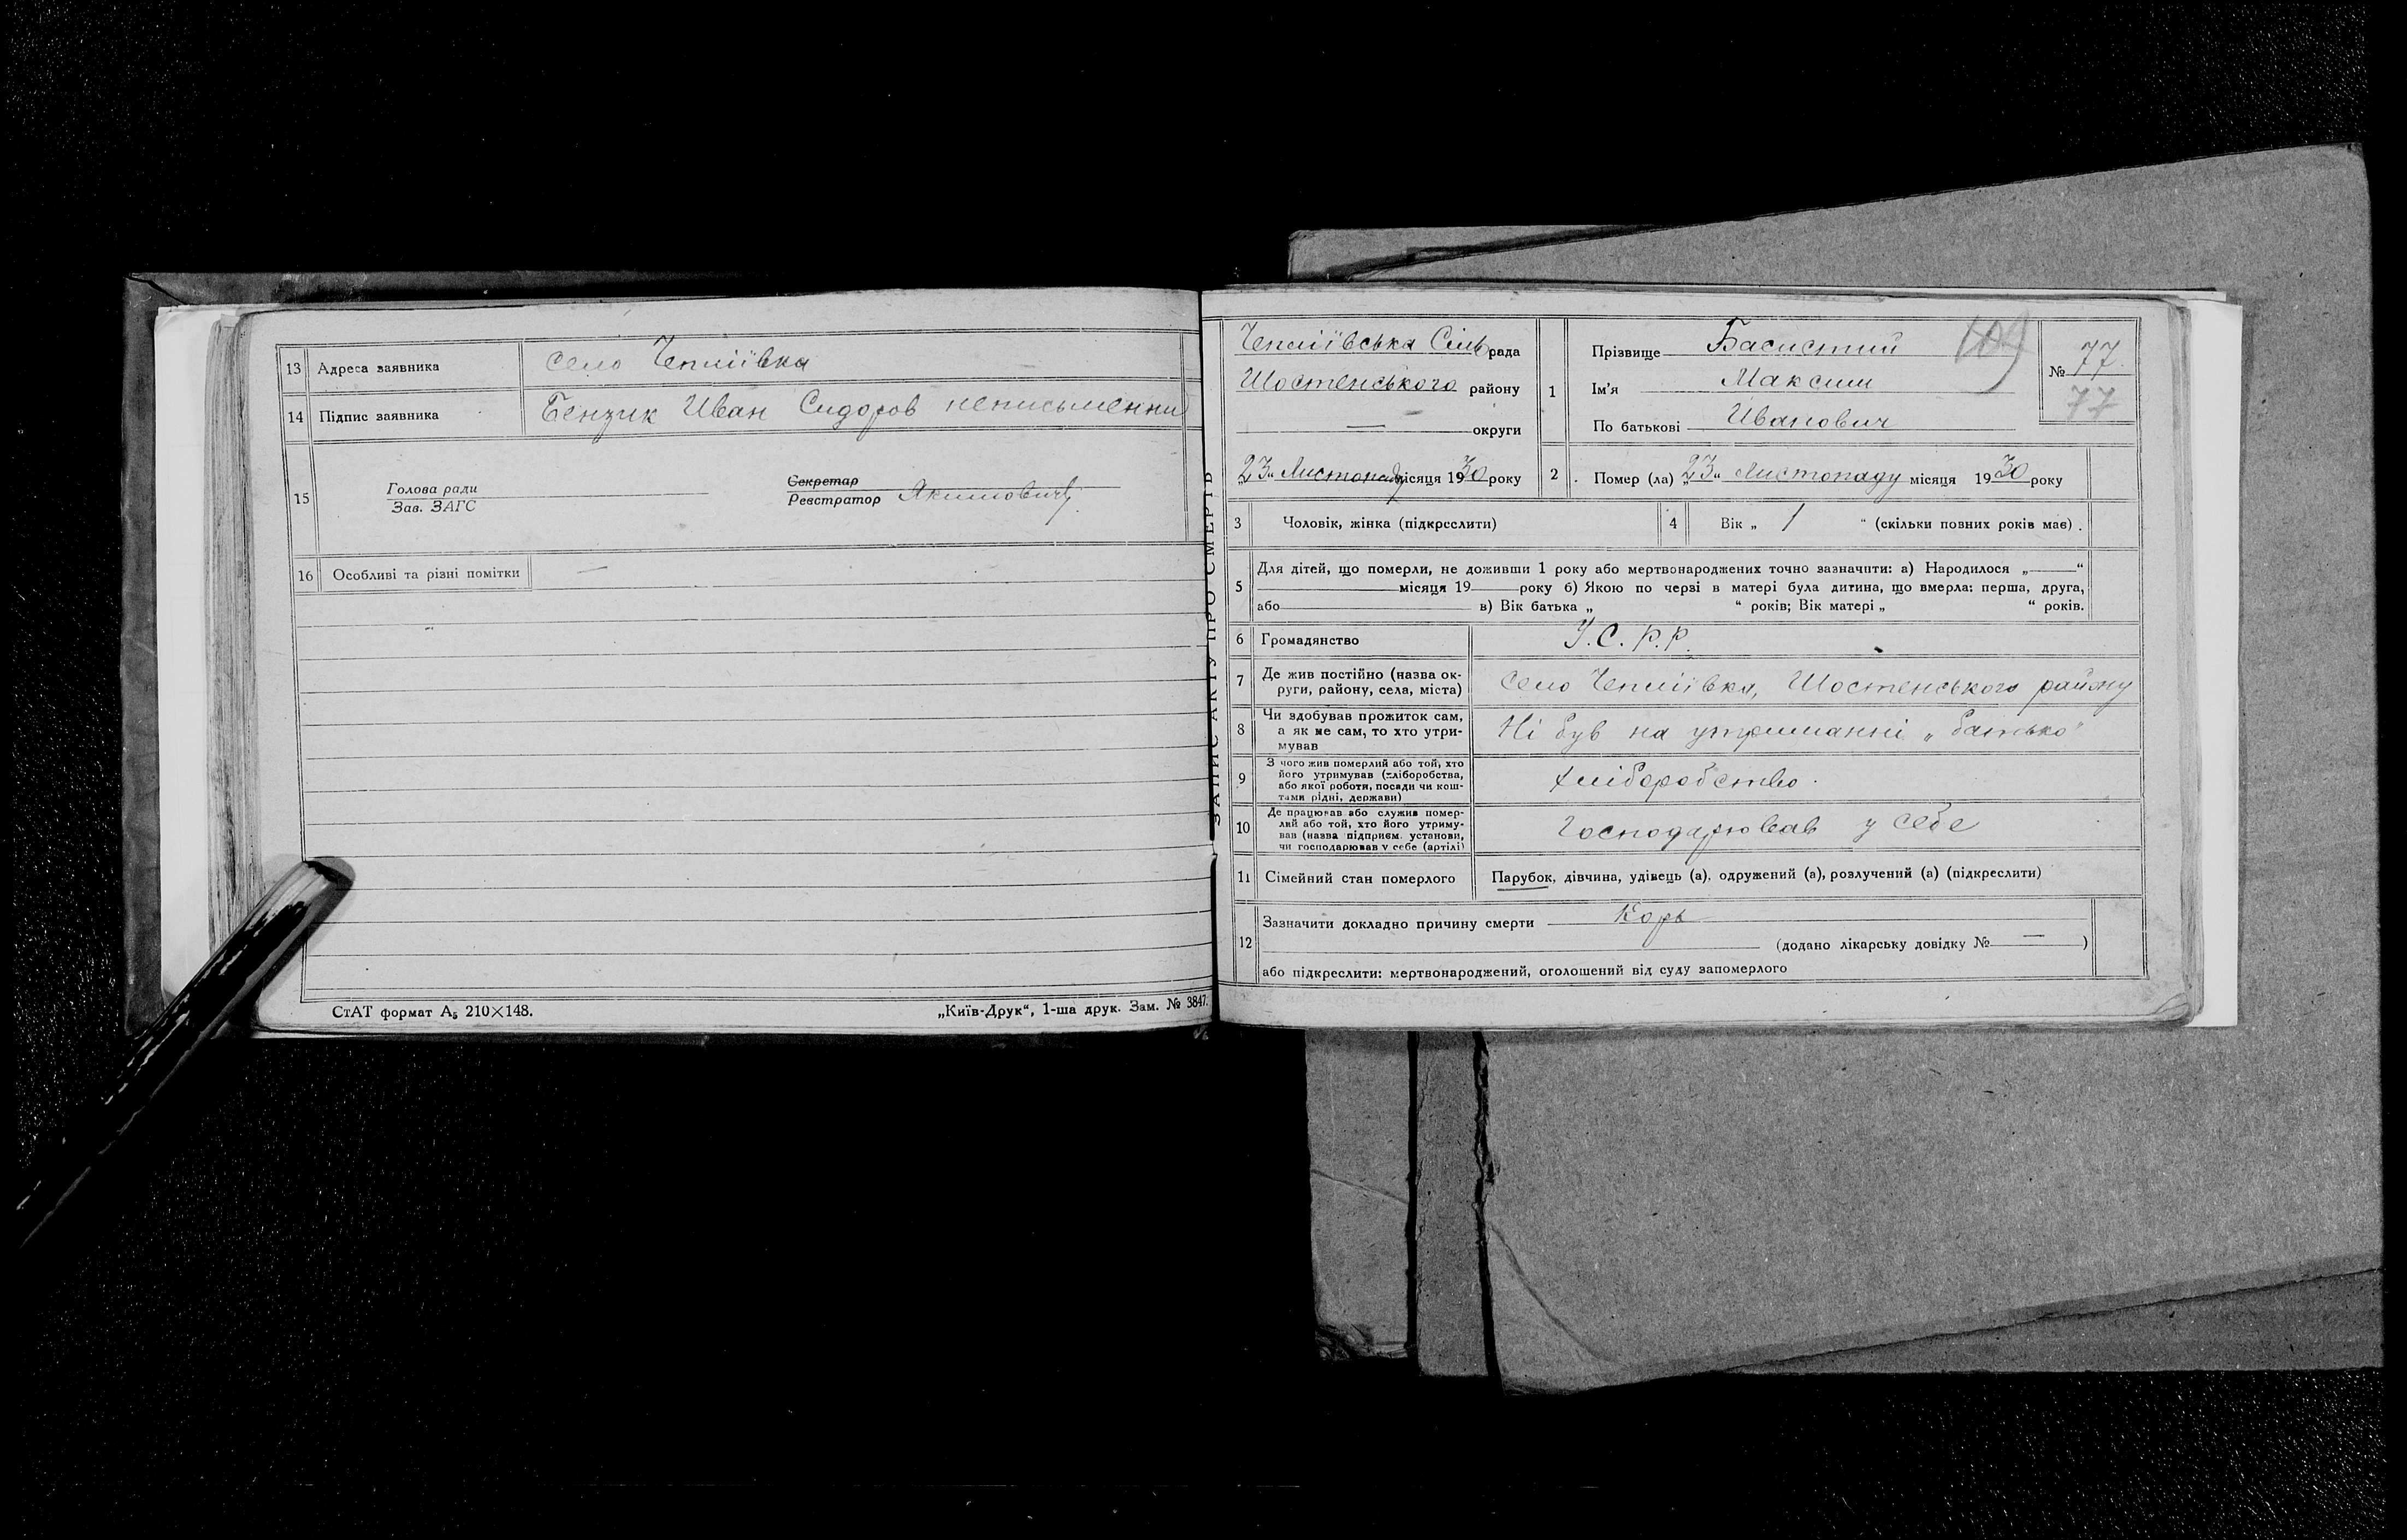 13 Адреса заявника село Чепліївка
14 Підпис заявника Бензик Иван Сидоров неписьменни
15 Голова ради
Зав. ЗАГС
Секретар
Реєстратор Якимович
16 Особливі та різні помітки —
СтАТ формат А₅ 210×148. „Київ-Друк“, 1-ша друк. Зам. № 3847.
ЗАПИС АКТУ ПРО СМЕРТЬ
Чепліївська Сільрада
Шостенського району
— округи
„23“ Листопаду місяця 1930 року
1 Прізвище Басистий
Ім'я Максим
По батькові Иванович
109
№ 77
77
2 Помер (ла) „23“ Листопаду місяця 1930 року
3 Чоловік, жінка (підкреслити) 4 Вік „ 1 “ (скільки повних років має).
5 Для дітей, що померли, не доживши 1 року або мертвонароджених точно зазначити: а) Народилося „ “
місяця 19 року б) Якою по черзі в матері була дитина, що вмерла: перша, друга,
або в) Вік батька „ “ років; Вік матері „ “ років.
6 Громадянство У.С.Р.Р.
7 Де жив постійно (назва ок-
руги, району, села, міста) Село Чепліївка, Шостенського району
8 Чи здобував прожиток сам,
а як не сам, то хто утри-
мував Ні був на утриманні „батько“
9 З чого жив померлий або той, хто
його утримував (хліборобства,
або якої роботи, посади чи кош-
тами рідні, держави) хліборобство.
10 Де працював або служив помер-
лий або той, хто його утриму-
вав (назва підприєм. установи,
чи господарював у себе (артілі) Господарював у себе
11 Сімейний стан померлого Парубок, дівчина, удівець (а), одружений (а), розлучений (а) (підкреслити)
12 Зазначити докладно причину смерти Корь
(додано лікарську довідку № — )
або підкреслити: мертвонароджений, оголошений від суду запомерлого